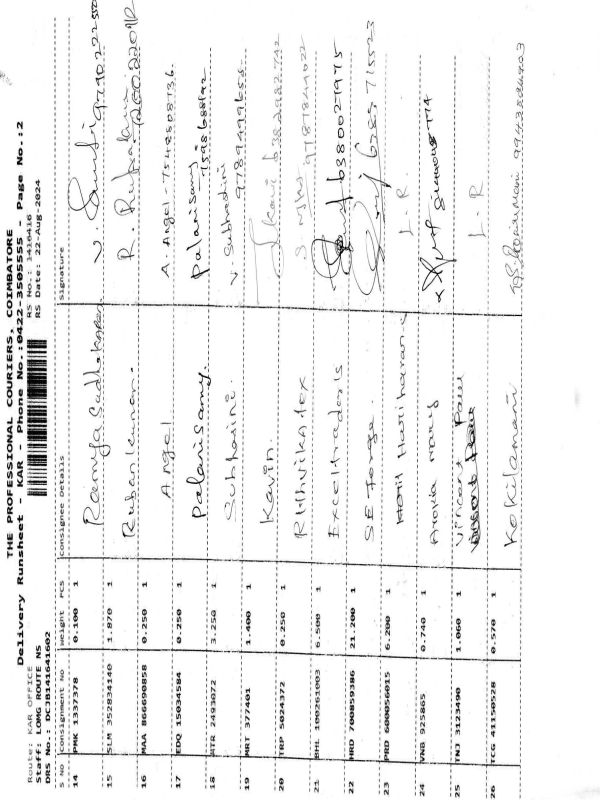 THE PROFESSIONAL COURIERS, COIMBATORE
Delivery Runsheet - KAR - Phone No.:0422-3505555 - Page No.:2
Route: KAR OFFICE
Staff: LOMG ROUTE NS RS No.: 1416416
DRS No.: DCJB141641602 RS Date: 22-Aug-2024
S No Consignment No Weight PCS Consignee Details Signature
14 PMK 1337378 0.100 1 Ramya Sudhakaran V.
15 SLM 352834140 1.870 1 Rubankumar R.
16 MAA 866690858 0.250 1 Angel A. Angel - 7548808736
17 EDQ 15034584 0.250 1 Palanisamy Palanisamy 7598688192
18 MTR 2493072 3.250 1 Subhasini V Subhashini 9789499655
19 MRT 377401 1.400 1 Kavin Kavi 6382982742
20 TRP 5024372 0.250 1 Rithvika tex 9787844022
21 BHL 100261003 6.500 1 Excel traders 6380027975
22 HRD 700859386 21.200 1 SE Forge 715523
23 PRD 600056015 6.200 1 Hotil Hariharan L.R.
24 VNB 925865 0.740 1 Arokia mary
25 TNJ 3123490 1.060 1 Vincent Paul L.R
26 TCG 41150528 0.570 1 Kokilamani